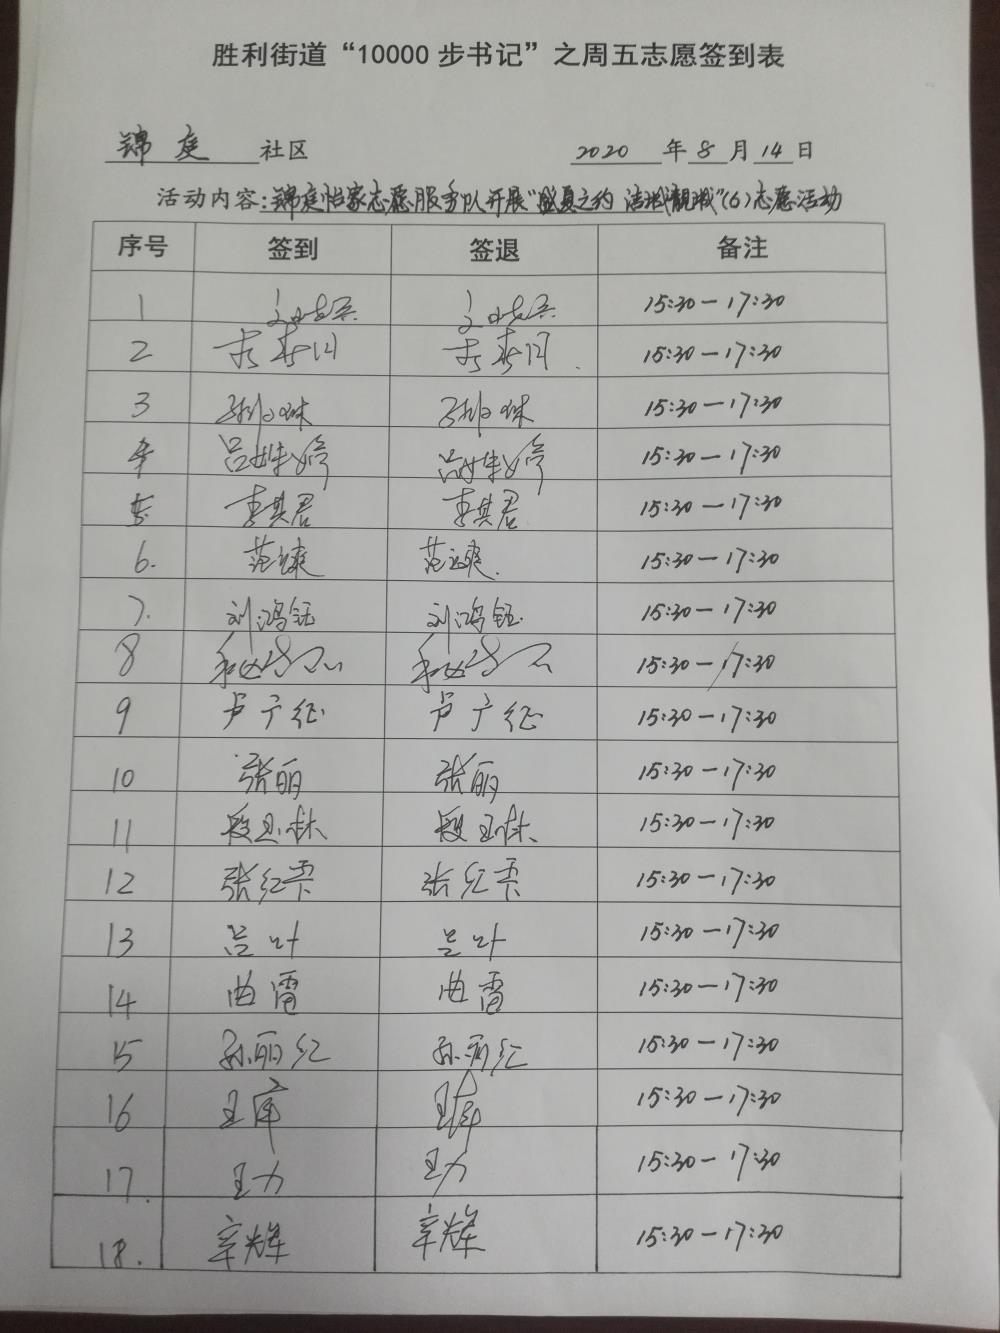 胜利街道“10000步书记”之周五志愿签到表
锦庭 社区 2020 年 8 月 14 日
活动内容:锦庭怡家志愿服务队开展“盛夏之约 洁城靓城”(6)志愿活动
序号 签到 签退 备注
1 15:30-17:30
2 15:30-17:30
3 15:30-17:30
4 15:30-17:30
5 李其君 李其君 15:30-17:30
6. 15:30-17:30
7. 刘鸿钰 刘鸿钰 15:30-17:30
8 15:30-17:30
9 卢广征 卢广征 15:30-17:30
10 张丽 张丽 15:30-17:30
11 段玉林 段玉林 15:30-17:30
12 张红霞 张红霞 15:30-17:30
13 兰叶 兰叶 15:30-17:30
14 曲雷 曲雷 15:30-17:30
15 孙丽红 孙丽红 15:30-17:30
16 15:30-17:30
17. 王力 王力 15:30-17:30
18. 辛烽 辛烽 15:30-17:30